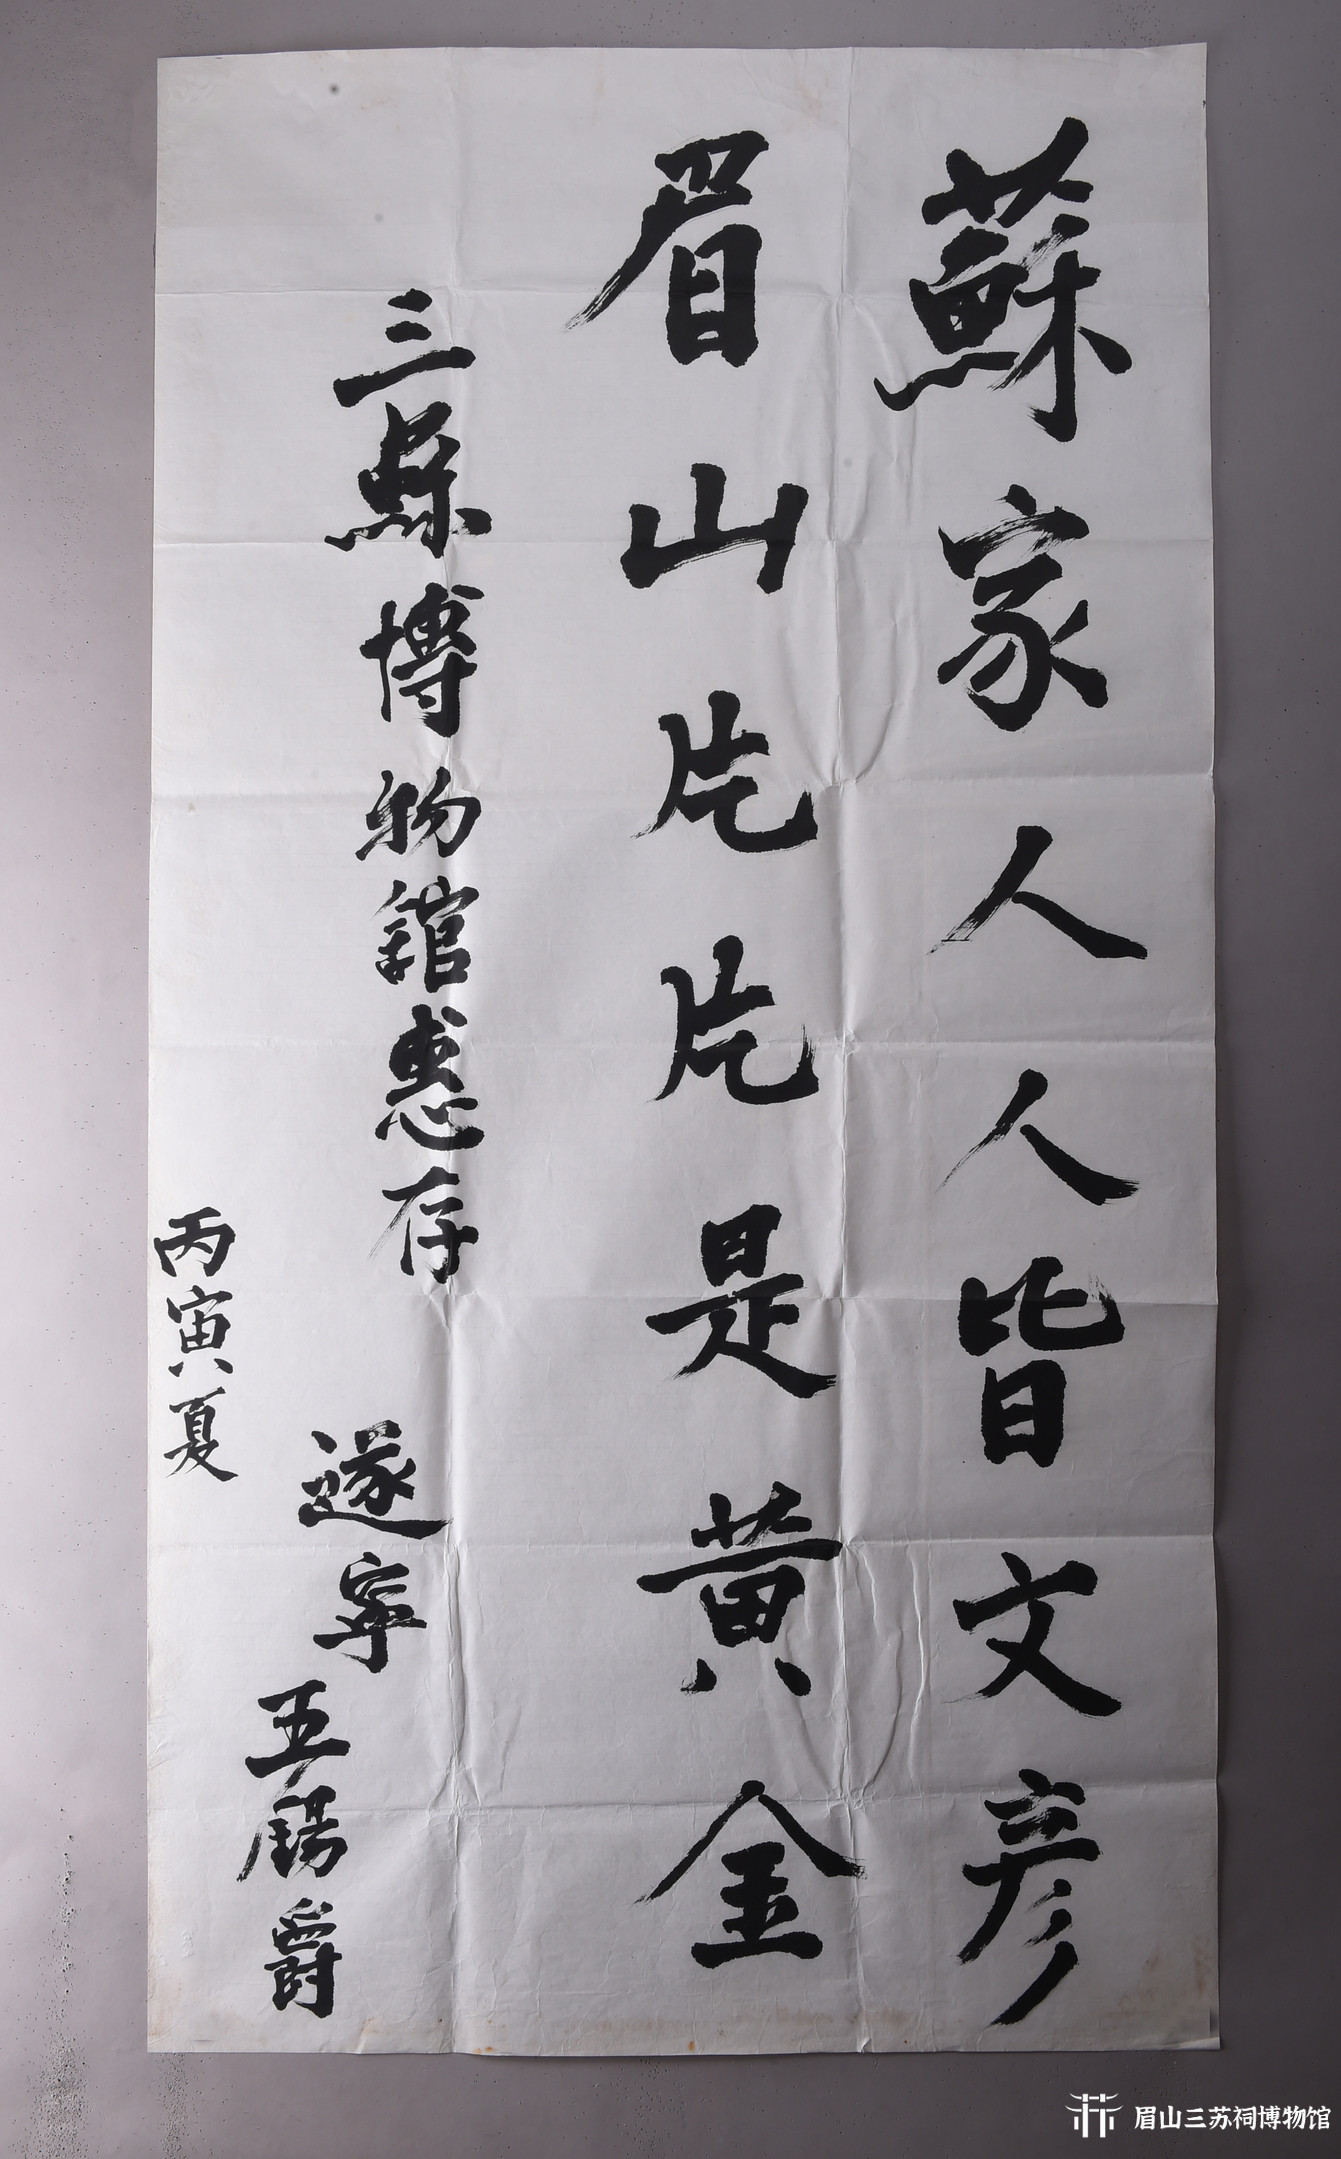 蘇家人人皆文彦
眉山片片是黄金
三蘇博物館惠存
遂寧王錫爵
丙寅夏
眉山三苏祠博物馆